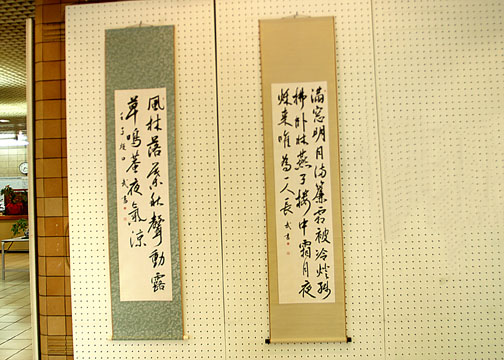 滿窓明月滿簾霜被冷燈殘
拂卧牀燕子樓中霜月夜
秌来唯為一人長 武書
風林落葉秋聲動露
草鳴蛩夜氣涼
武書